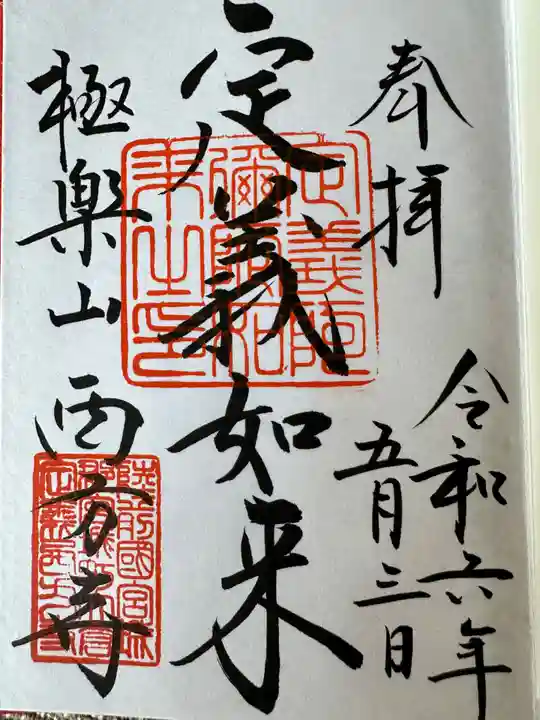 奉拝
令和六年
五月三日
定義如来
極楽山 西方寺